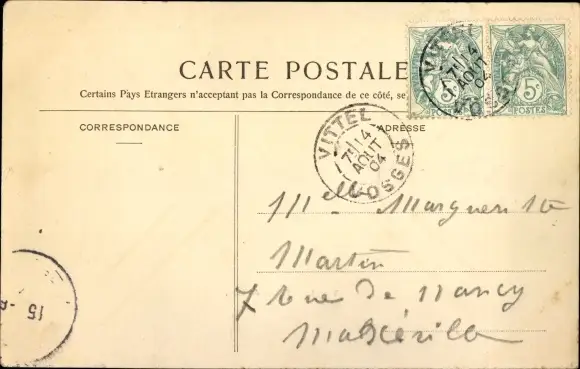 CARTE POSTALE
Certains Pays Etrangers n'acceptant pas la Correspondance de ce côté, se
CORRESPONDANCE
ADRESSE
VITTEL
7E 14
AOUT
04
VOSGES
VITTEL
7E 14
AOUT
04
VOSGES
5c
POSTES
5c
POSTES
Mlle Marguerite
Martin
7 rue de Nancy
15